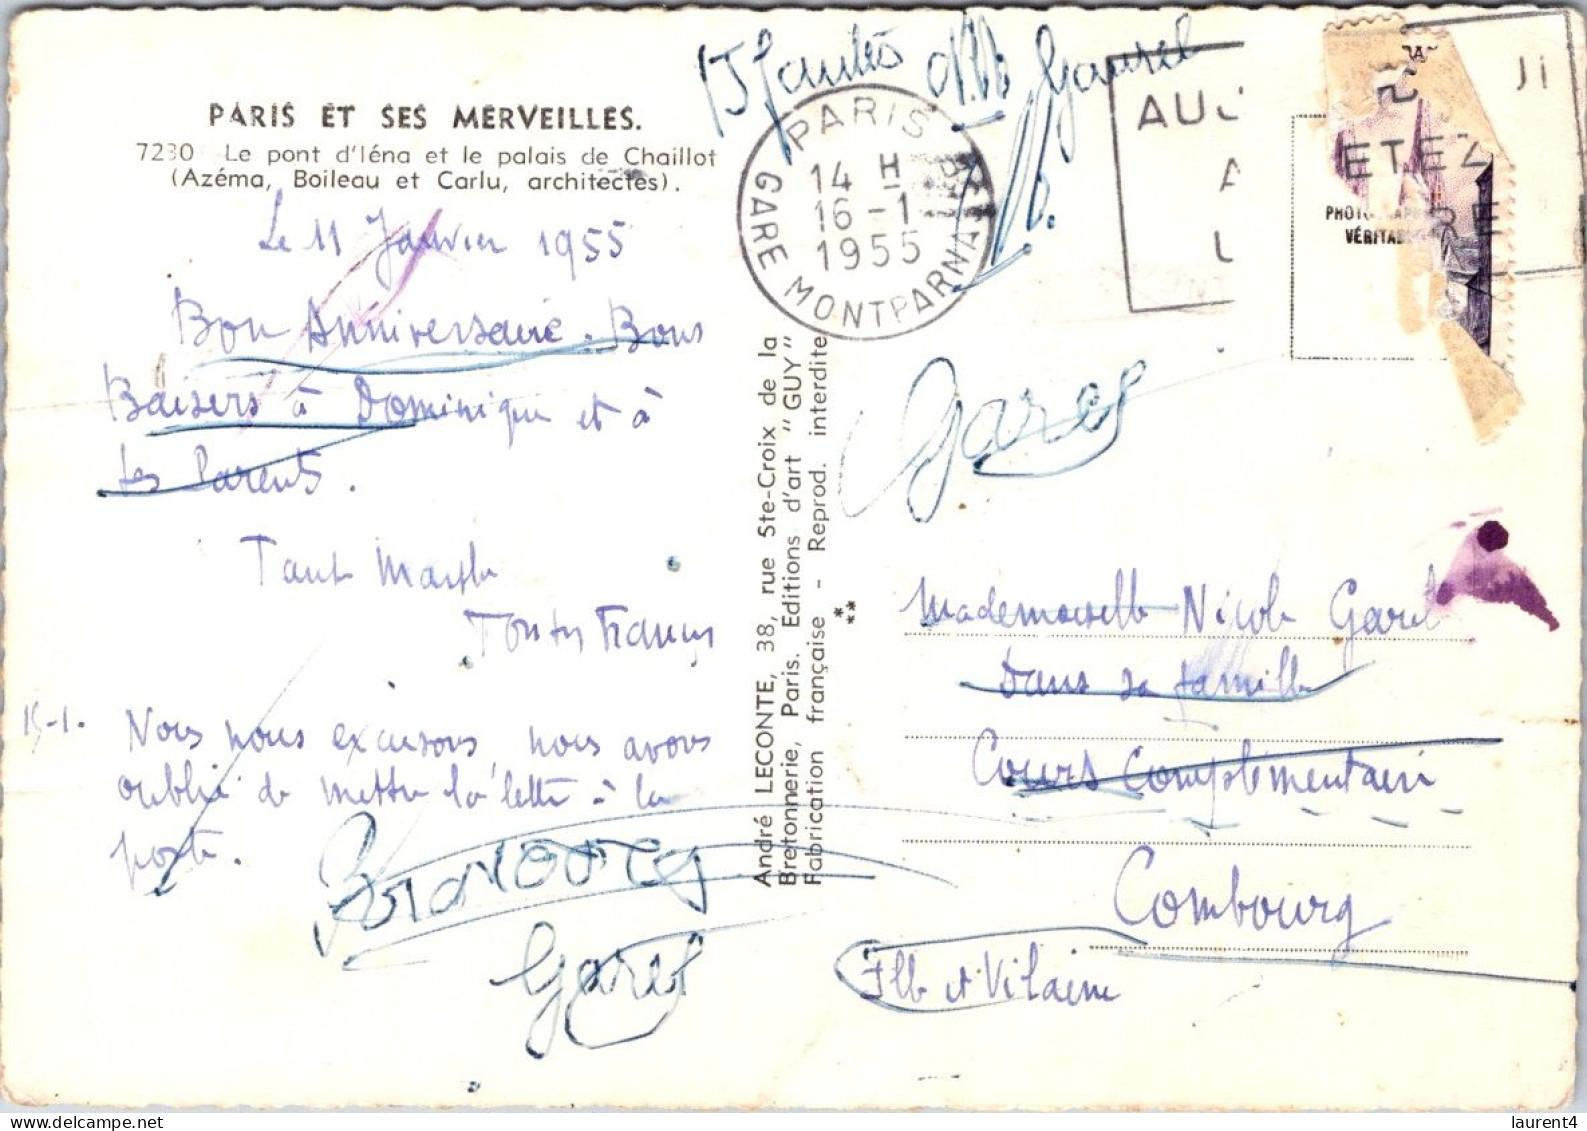 PARIS ET SES MERVEILLES.
7230 Le pont d'Iéna et le palais de Chaillot
(Azéma, Boileau et Carlu, architectes).
Le 11 Janvier 1955
Bon Anniversaire. Bons
Baisers à Dominique et à
tes Parents.
15-1. Nous nous excusons, nous avons
oublié de mettre la lettre à la
poste.
Garel
André LECONTE, 38, rue Ste-Croix de la
Bretonnerie, Paris. Editions d'art "GUY"
Fabrication française - Reprod. interdite
15 fautes
PARIS
GARE MONTPARNASSE
14 H
16-1
1955
AUC
A
L
ETEZ
PHOTO
VÉRITAB
Garel
Mademoiselle Nicole Garel
Dans sa famille
Cours Complémentaire
Combourg
Ille et Vilaine
laurent4